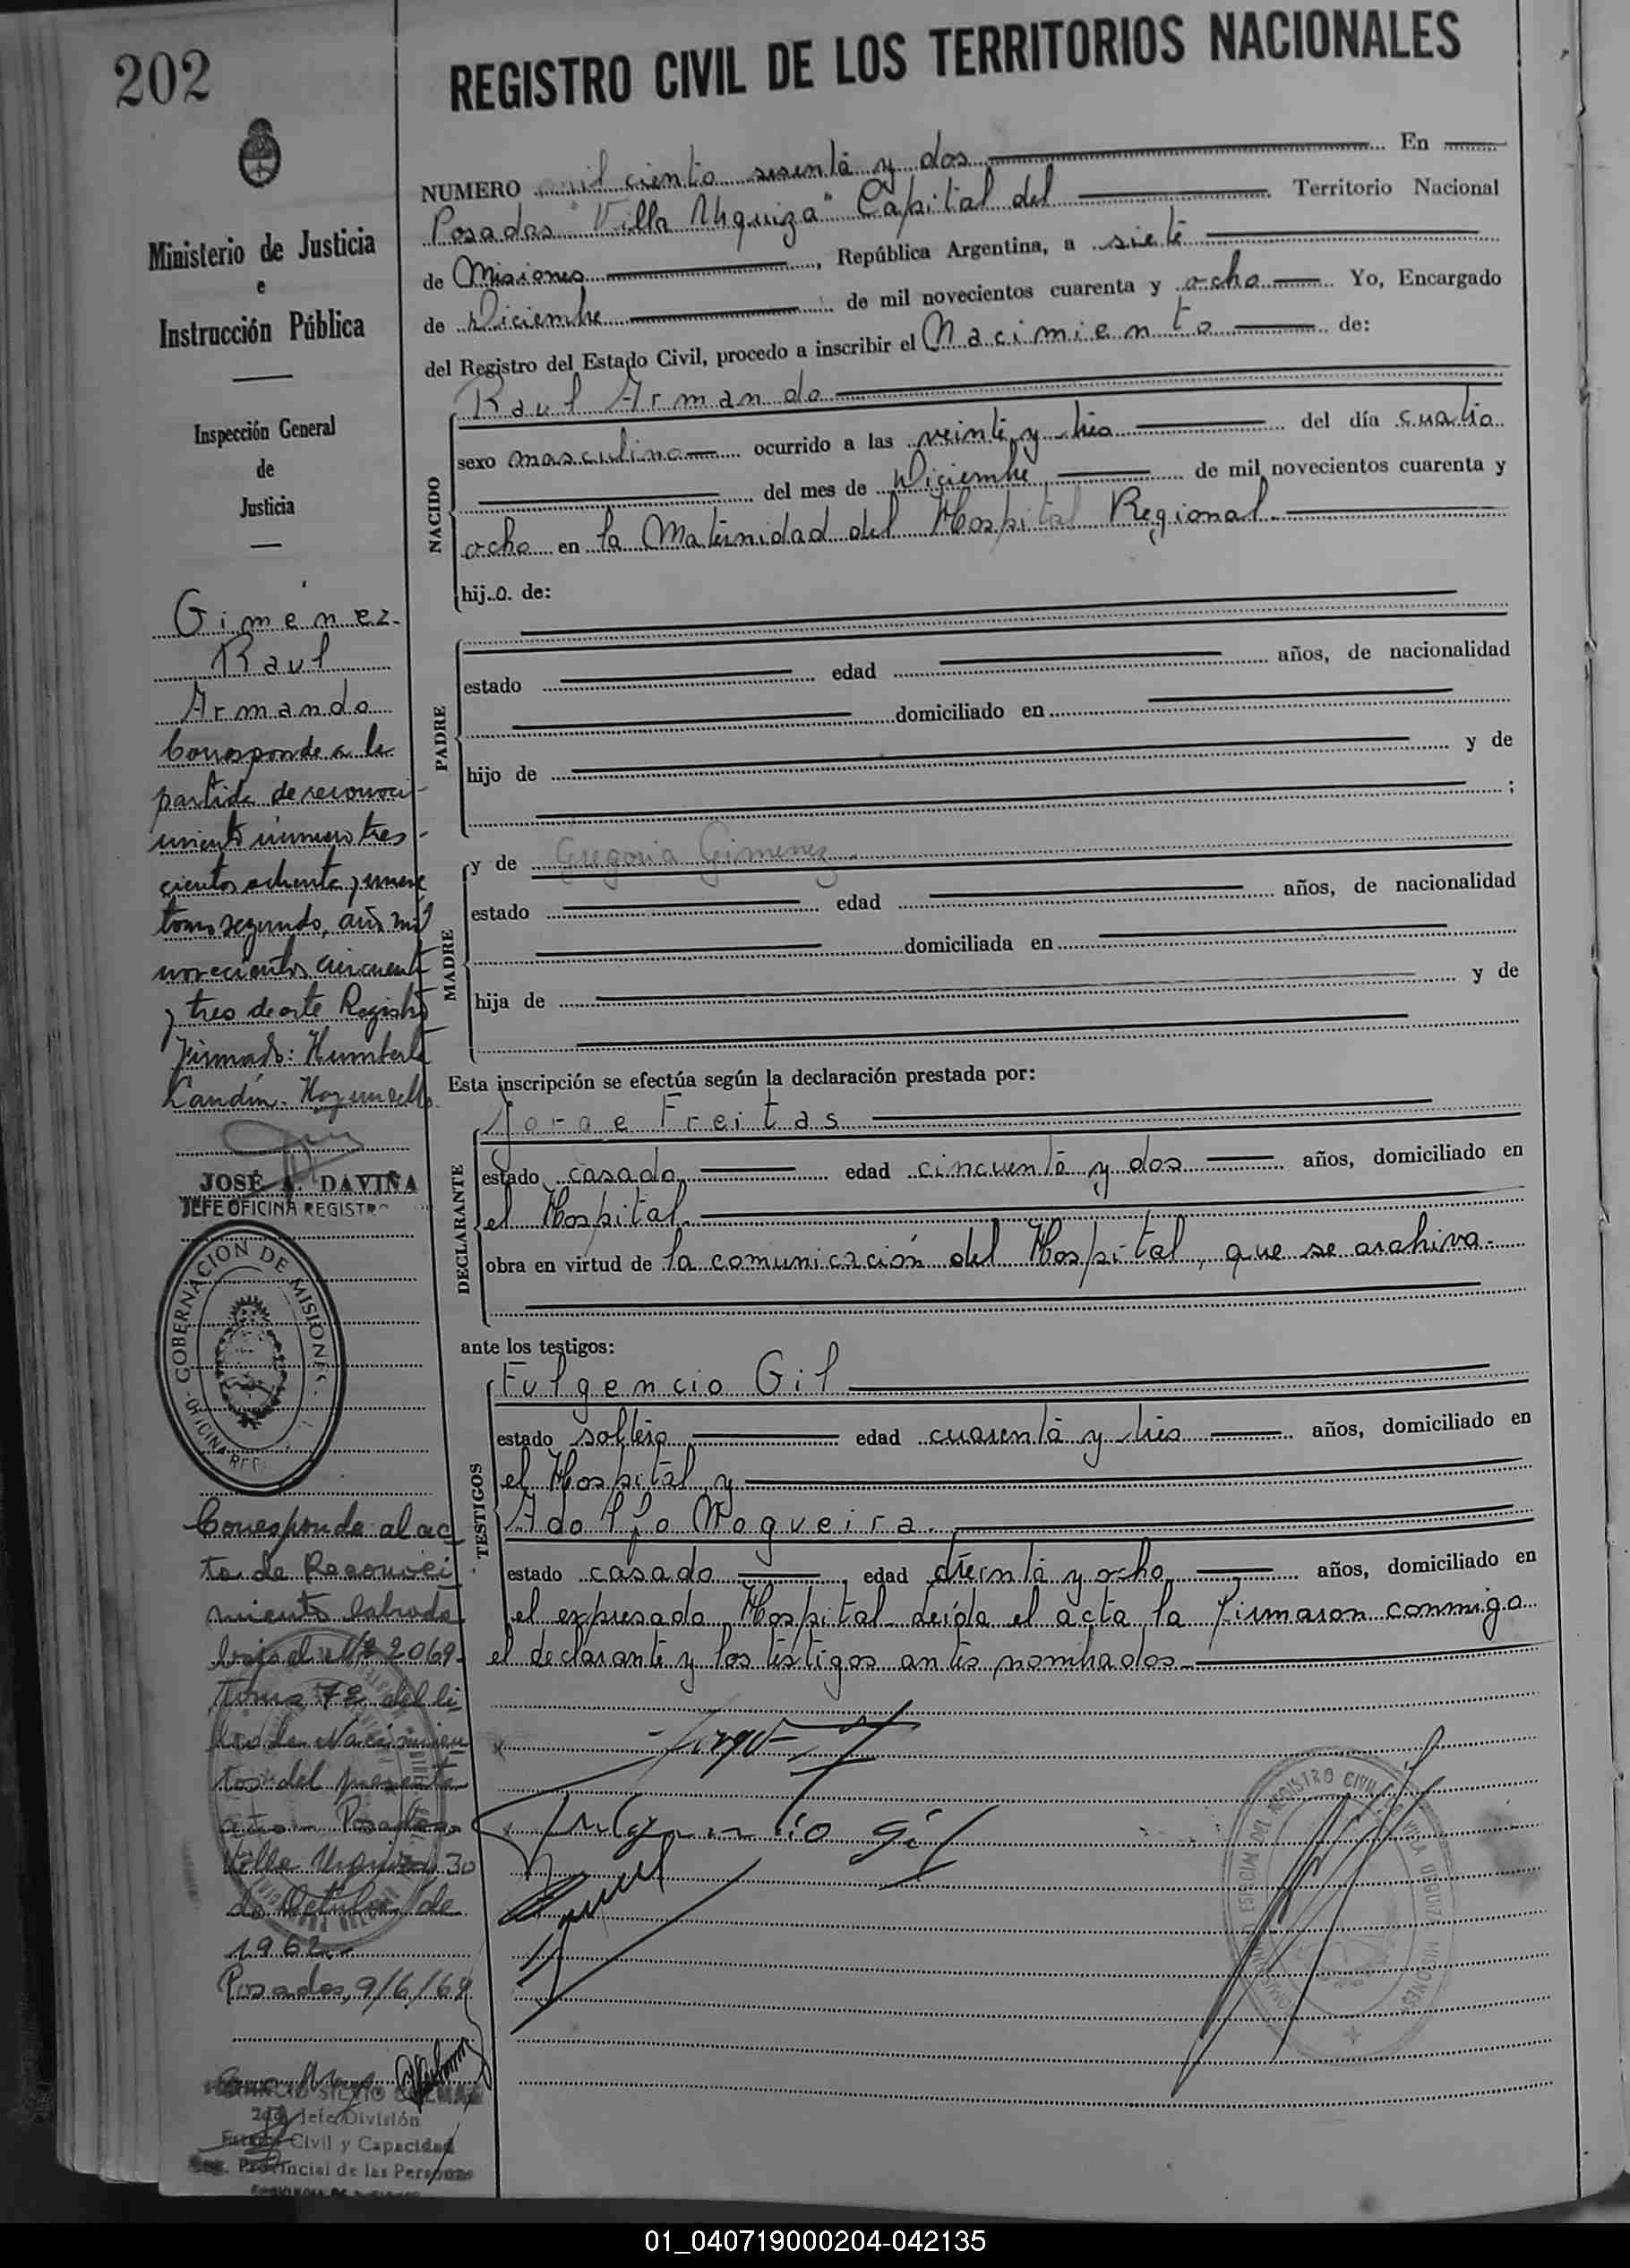 202
REGISTRO CIVIL DE LOS TERRITORIOS NACIONALES
Ministerio de Justicia
e
Instrucción Pública
Inspección General
de
Justicia
Giménez
Raul
Armando
Corresponde a la
partida de reconoci-
miento número tres-
cientos ochenta y nueve
tomo segundo, año mil
novecientos cincuenta
y tres de este Registro
Firmado: Humberto
Landín. Hay un sello.
JOSÉ A. DAVIÑA
JEFE OFICINA REGISTRO
GOBERNACION DE MISIONES
OFICINA REG
Corresponde al ac
ta de Reconoci
miento labrada
bajo el Nº 2069
Tomo 7º del li
bro de Nacimien
tos del presente
año. Posadas
Villa Urquiza 30
de Octubre de
1962.-
Posadas, 9/6/69
SILVIO
2do Jefe División
Estado Civil y Capacidad
Reg. Provincial de las Personas
NUMERO mil ciento sesenta y dos En
Posadas "Villa Urquiza" Capital del Territorio Nacional
de Misiones, República Argentina, a siete
de Diciembre de mil novecientos cuarenta y ocho Yo, Encargado
del Registro del Estado Civil, procedo a inscribir el Nacimiento de:
NACIDO
Raul Armando
sexo masculino ocurrido a las veinte y tres del día cuatro
del mes de Diciembre de mil novecientos cuarenta y
ocho en la Maternidad del Hospital Regional.
hijo de:
PADRE
estado edad años, de nacionalidad
domiciliado en
hijo de y de
;
MADRE
y de Gregoria Gimenez.
estado edad años, de nacionalidad
domiciliada en
hija de y de
Esta inscripción se efectúa según la declaración prestada por:
DECLARANTE
Jorge Freitas
estado casado edad cincuenta y dos años, domiciliado en
el Hospital.
obra en virtud de la comunicación del Hospital, que se archiva.
ante los testigos:
TESTIGOS
Fulgencio Gil
estado soltero edad cuarenta y tres años, domiciliado en
el Hospital y
Adolfo Nogueira.
estado casado edad treinta y ocho años, domiciliado en
el expresado Hospital leída el acta la firmaron conmigo
el declarante y los testigos antes nombrados.
Jorge F
Fulgencio Gil
REGISTRO CIVIL VILLA URQUIZA MISIONES
01_040719000204-042135